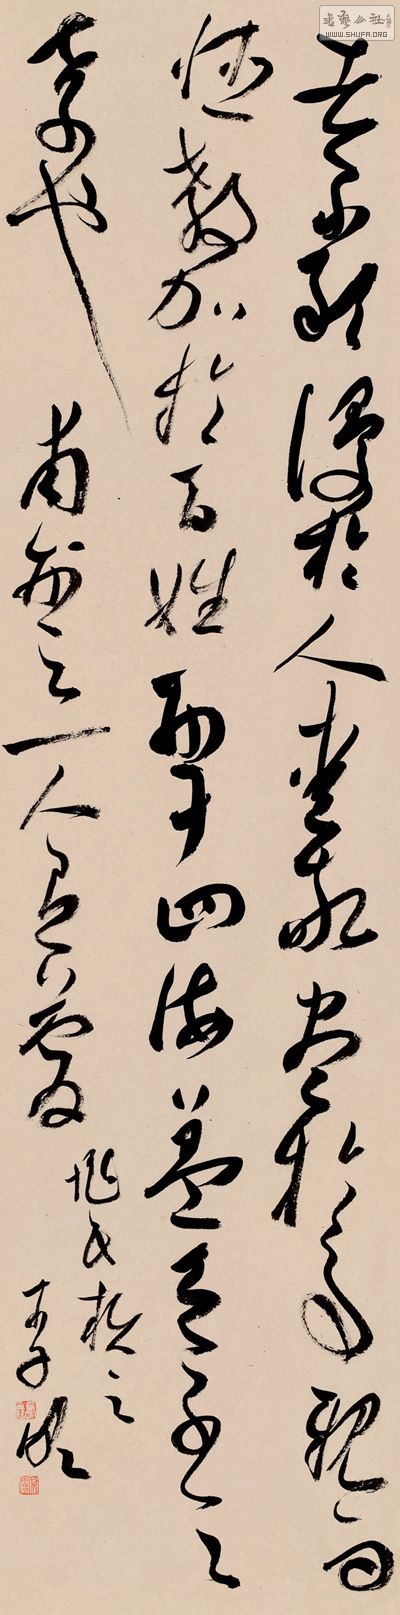 者不敢慢於人愛敬盡於事親而
德教加於百姓刑于四海蓋天子之
孝也
甫刑云一人有慶
兆民賴之
李
書藝公社
WWW.SHUFA.ORG